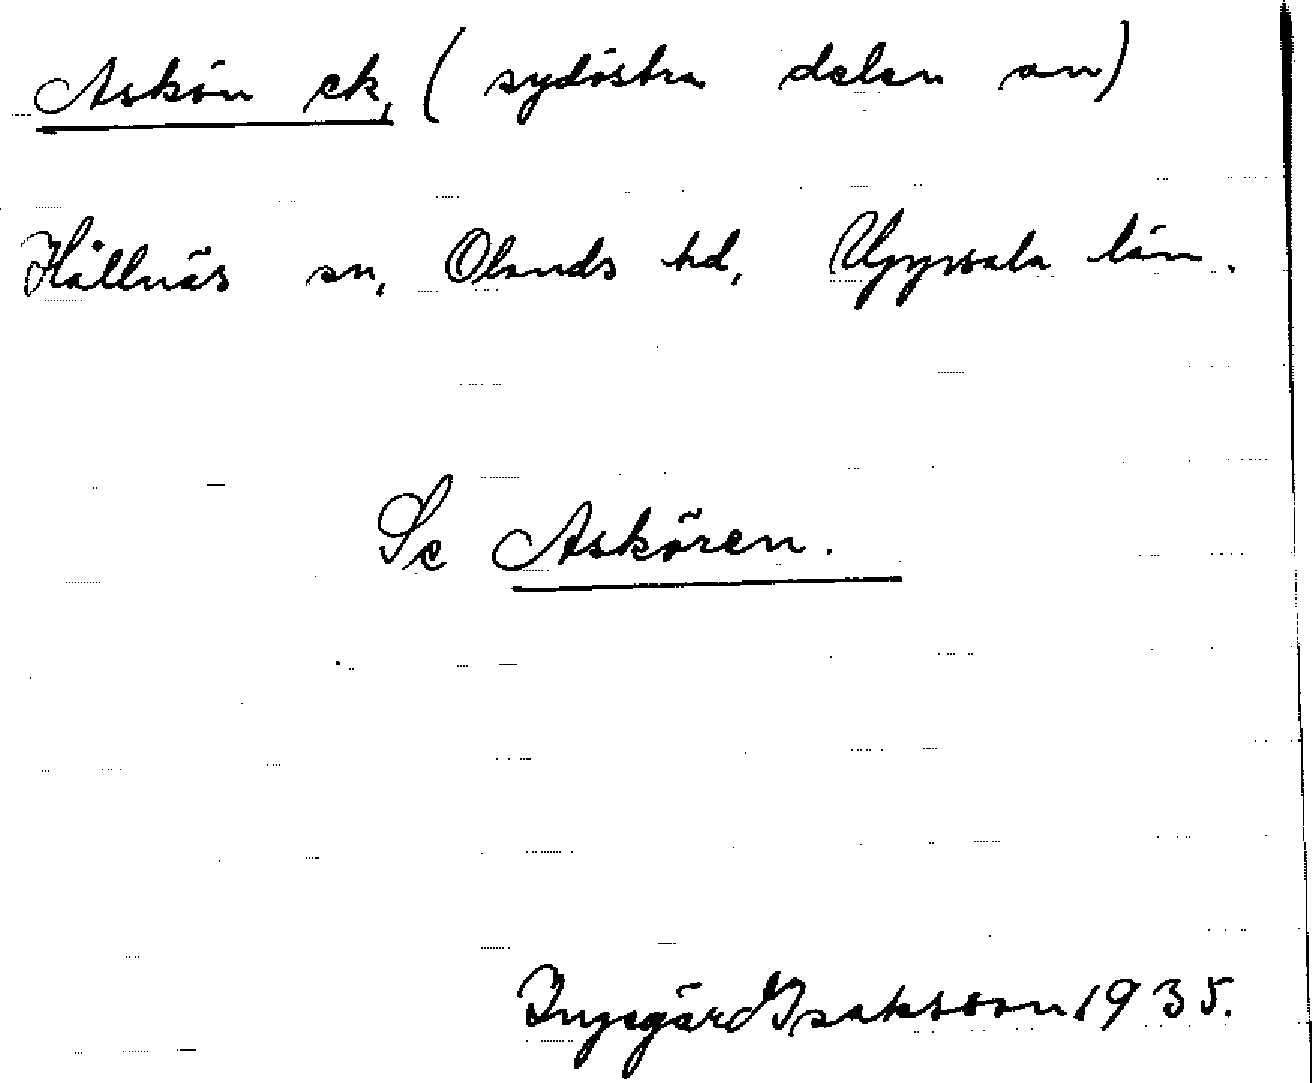 Askön ek, (sydöstra delen av)
Hållnäs sn, Olands hd, Uppsala län.
Se Askören.
Ingegärd Isaksson 1935.